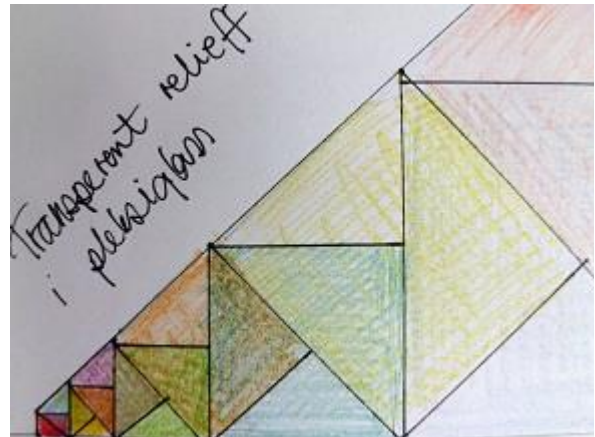 Transperent relieff
i pleksiglass